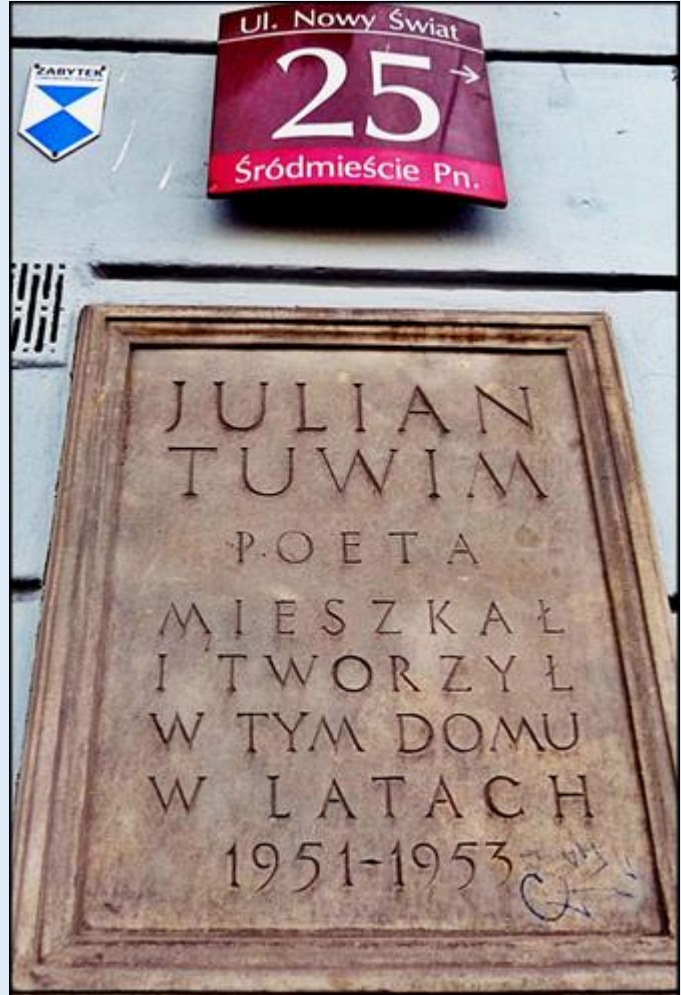 Ul. Nowy Świat
25 →
Śródmieście Pn.
ZABYTEK
JULIAN
TUWIM
POETA
MIESZKAŁ
I TWORZYŁ
W TYM DOMU
W LATACH
1951-1953